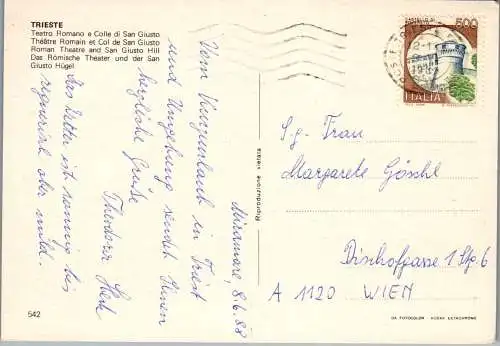 TRIESTE
Teatro Romano e Colle di San Giusto
Théâtre Romain et Col de San Giusto
Roman Theatre and San Giusto Hill
Das Römische Theater und der San
Giusto Hügel
Miramare, 8/6.88
Vom Kurzurlaub in Triest
und Umgebung sendet Ihnen
herzliche Grüße
Theodora
Das Wetter ist sonnig bis
regnerisch aber mild.
542
Riproduzione vietata
500
ITALIA
S.g. Frau
Margarete Göschl
Bischofgasse 1 Stg. 6
A 1120 WIEN
DA FOTOCOLOR KODAK EKTACHROME